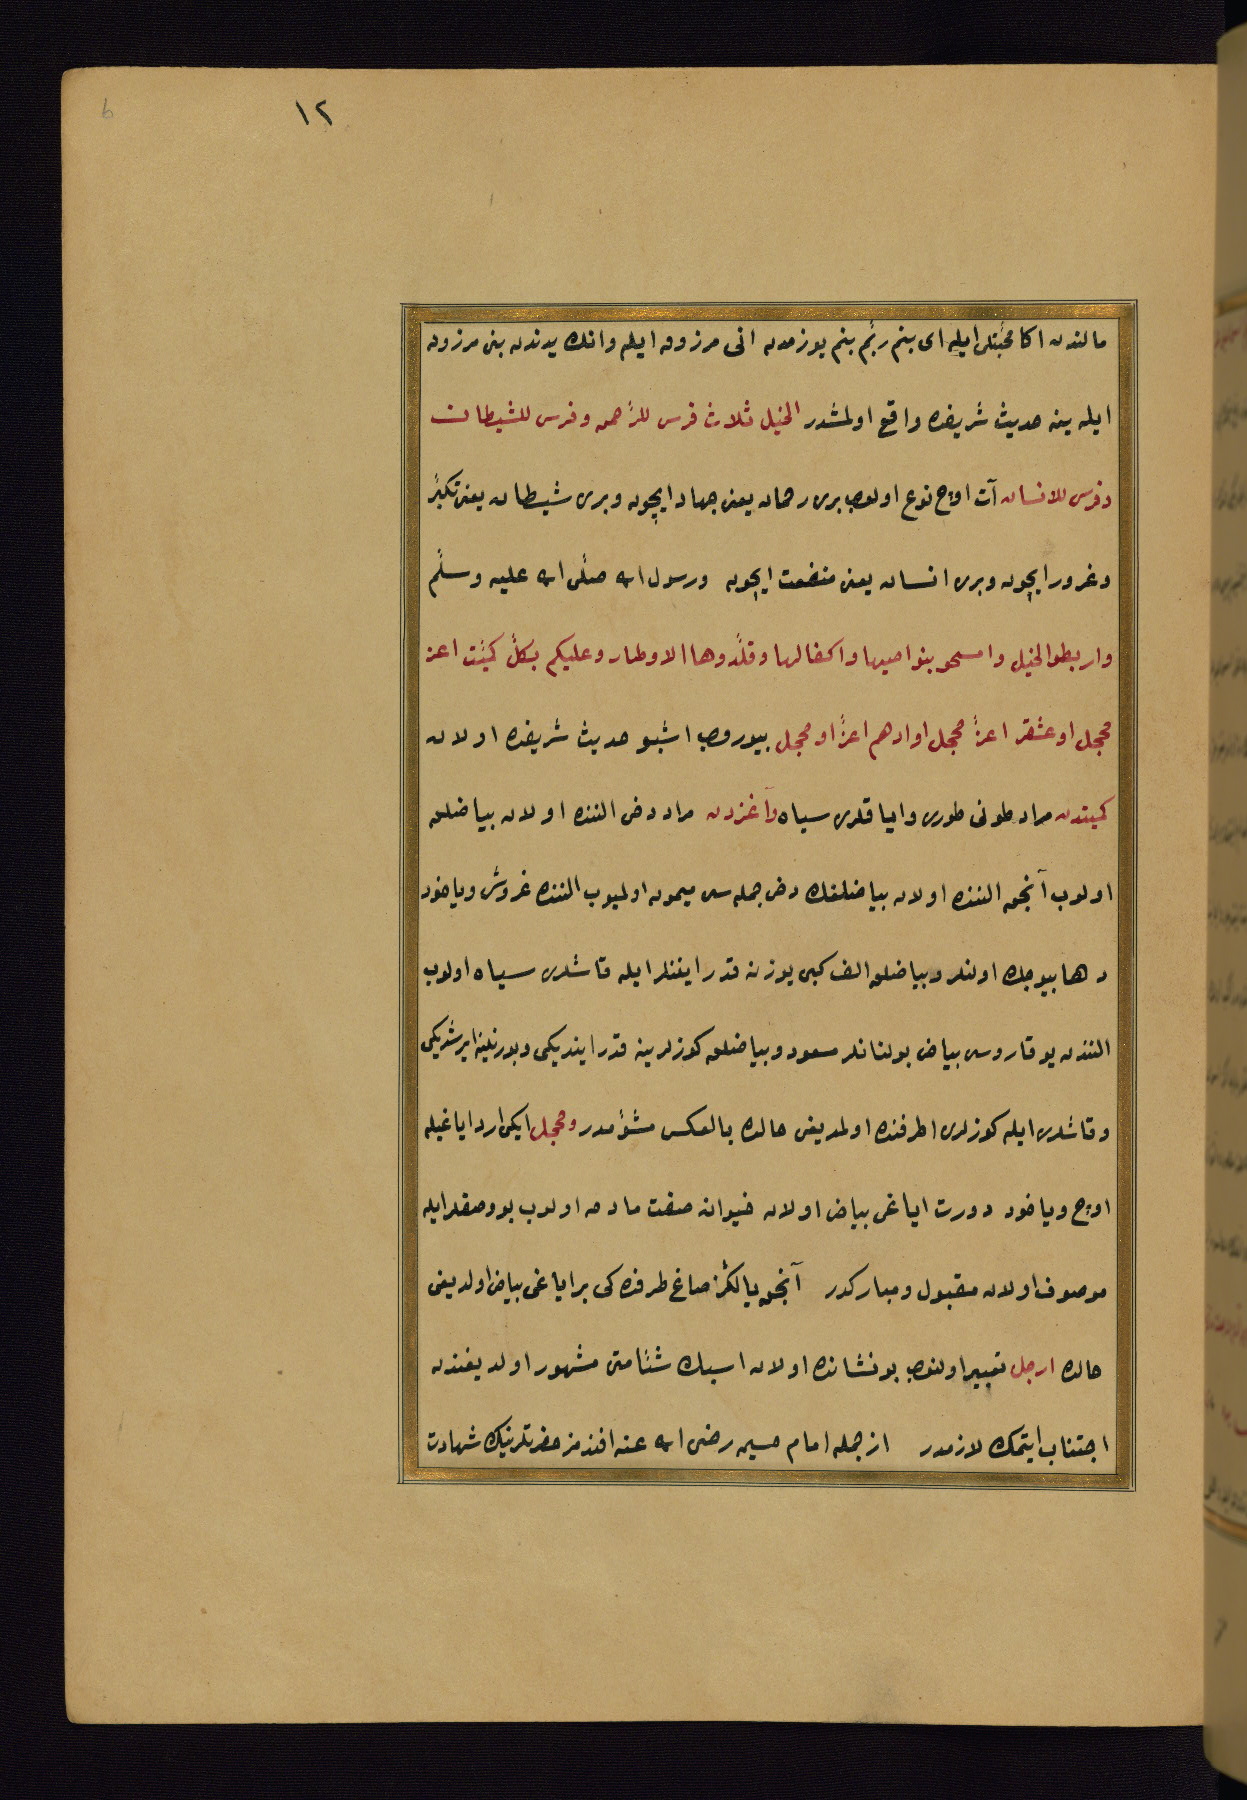 ١٢
6
مالندن اكا محبتلى ايله اى بنم ربم بنم يوزمدن انى مرزوق ايله وانك يدندن بنى مرزوق
ايله ينه حديث شريفده واقع اولمشدر الخيل ثلاث فرس للرحمن وفرس للشيطان
وفرس للانسان آت اوچ نوع اولوب برى رحمان يعنى جهاد ايچون وبرى شيطان يعنى تكبر
وغرور ايچون وبرى انسان يعنى منفعت ايچون ورسول الله صلّى الله عليه وسلّم
واربطوا الخيل وامسحو بنواصيها واكفالها وقلّدوها الاوطار وعليكم بكلّ كميّت اعز
محجل او عشقر اعزّ محجل او ادهم اعزّ او محجل بيوروب اشبو حديث شريفده اولان
كميتدن مراد طونى طورى واياقلرى سياه وآغزدن مراد دخى الننده اولان بياضلق
اولوب آنجق الننده اولان بياضلغك دخى جمله سى ميمون اولميوب الننده غروش وياخود
دها بيوجك اولنلر وبياضلق الف كبى يوزنه قدر ايننلر ايله قاشلرى سياه اولوب
الندن يوقاروسى بياض بولنانلر مسعود وبياضلق كوزلرينه قدر اينديكى وبورنينه ايرشديكى
وقاشلرى ايله كوزلرى اطرفنده اولمديغى حالده بالعكس مشؤمدر ومحجل ايكى ارد اياغيله
اوچ وياخود دورت اياغى بياض اولان حيوانه صفت مادحه اولوب بو وصفلر ايله
موصوف اولان مقبول ومباركدر آنجق يالكز صاغ طرفده كى بر اياغى بياض اولديغى
حالده ارجل تعبير اولنوب بو نشانده اولان اسبك شئامتى مشهور اولديغندن
اجتناب ايتمك لازمدر از جمله امام حسين رضى الله عنه افندمز حضرتلرينك شهادت